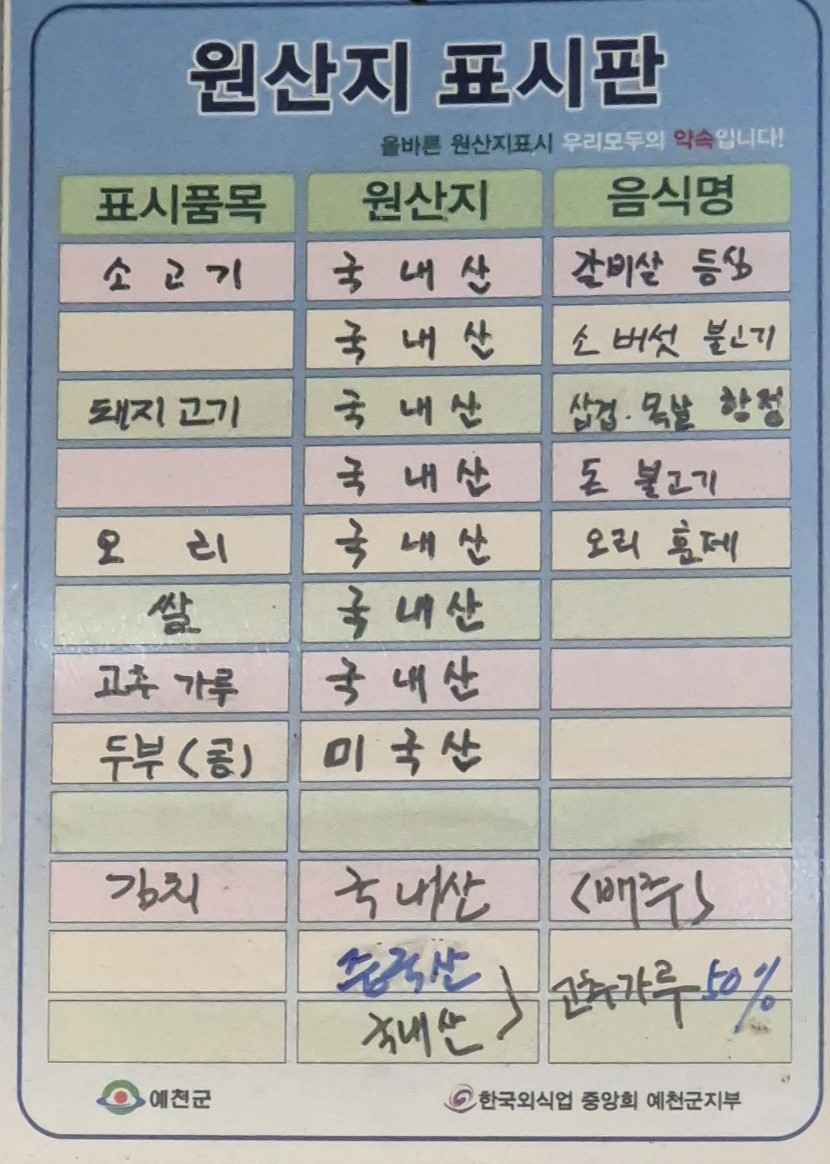 원산지 표시판
올바른 원산지표시 우리모두의 약속입니다!
표시품목 원산지 음식명
소고기 국내산 갈비살 등심
국내산 소 버섯 불고기
돼지고기 국내산 삼겹. 목살 항정
국내산 돈 불고기
오리 국내산 오리 훈제
쌀 국내산
고추 가루 국내산
두부(콩) 미국산
김치 국내산 (배추)
중국산
고추가루 50%
국내산
예천군 한국외식업 중앙회 예천군지부